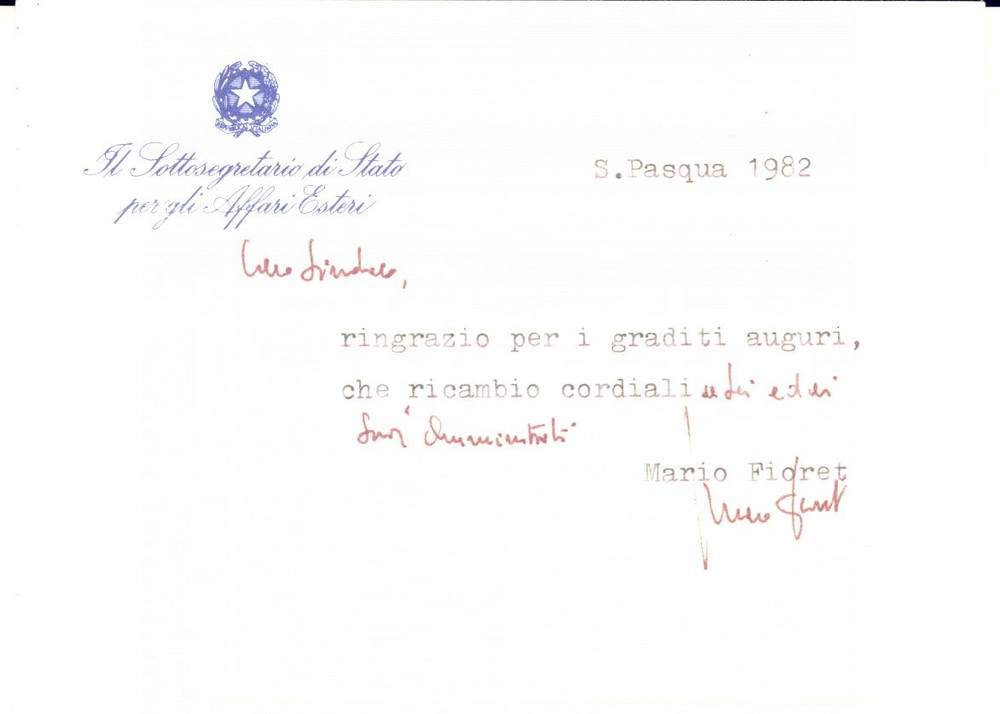 REPUBBLICA ITALIANA
Il Sottosegretario di Stato
per gli Affari Esteri
S.Pasqua 1982
Caro Sindaco,
ringrazio per i graditi auguri,
che ricambio cordiali a Lei ed ai
Suoi Amministrati
Mario Fioret
Mario Fioret